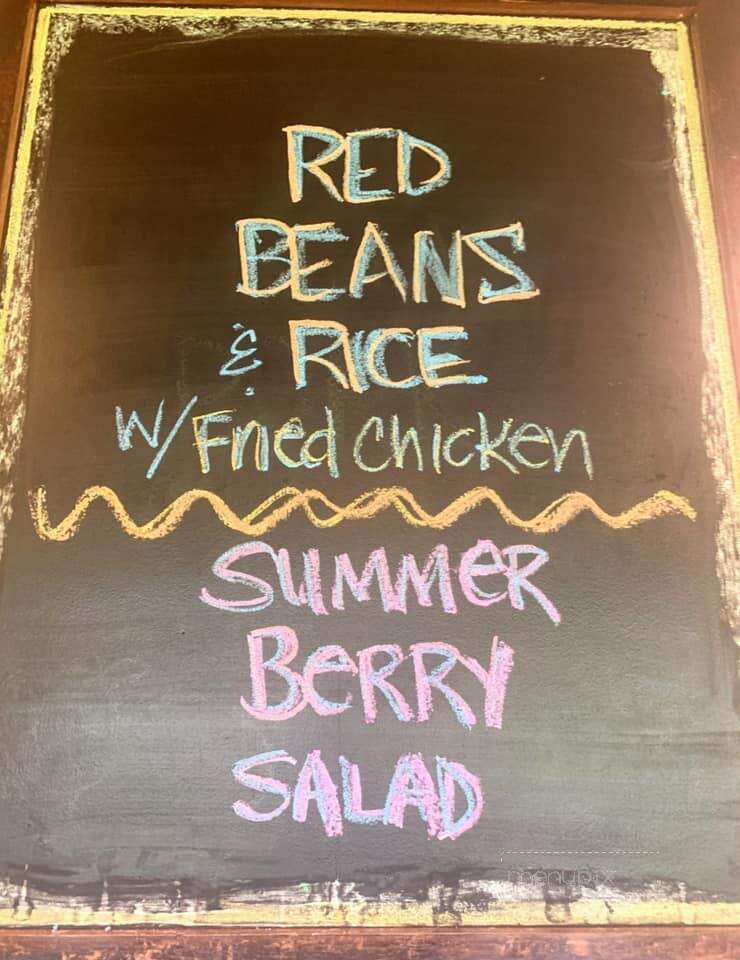 RED
BEANS
& RICE
W/ Fried Chicken
SUMMeR
BeRRY
SALAD
menupix